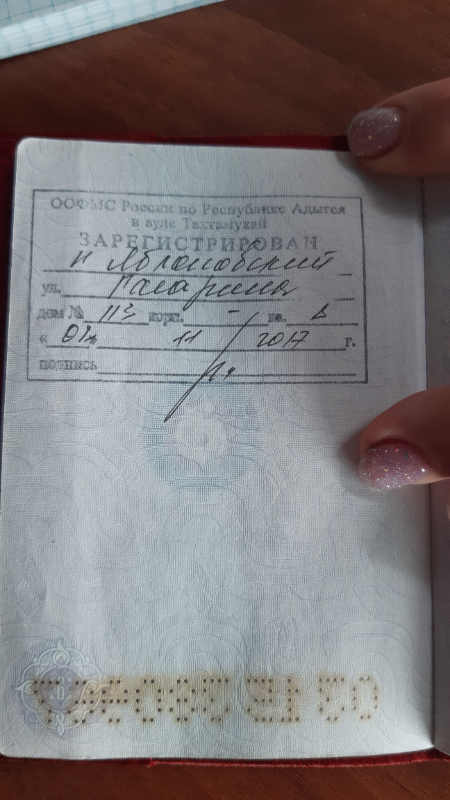 ООФМС России по Республике Адыгея
в ауле Тахтамукай
ЗАРЕГИСТРИРОВАН
п Яблоновский
ул. Гагарина
дом № 113 корп. – кв.
« 01» 11 2017 г.
подпись